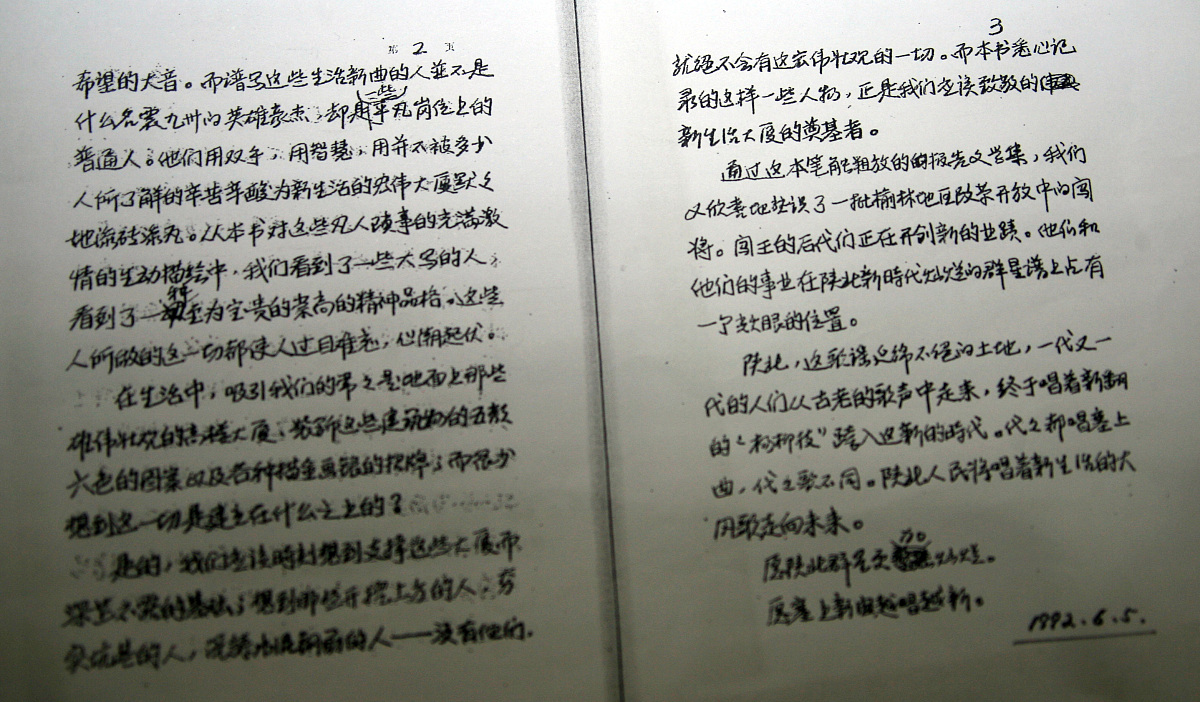 第 2 页
希望的大音。而谱写这些生活新曲的人並不是
一些
什么名震九州的英雄豪杰，却是平凡岗位上的
普通人。他们用双手，用智慧，用并不被多少
人所了解的辛苦辛酸为新生活的宏伟大厦默々
地添砖添瓦。从本书对这些凡人琐事的充满激
情的生动描绘中，我们看到了一些大写的人，
种
看到了一至为宝贵的崇高的精神品格。这些
人所做的这一切都使人过目难忘，心潮起伏。
在生活中，吸引我们的常々是地面上那些
雄伟壮观的高楼大厦，装饰这些建筑物的五颜
六色的图案以及各种描金画银的招牌；而很少
想到这一切是建立在什么之上的？
是的，我们应该時刻想到支撑这些大厦而
深埋不露的基础；想到那些开挖土方的人，夯
实坑基的人，浇铸水泥钢筋的人——没有他们，
3
就绝不会有这宏伟壮观的一切。而本书悉心记
录的这样一些人物，正是我们应该致敬的
新生活大厦的奠基者。
通过这本笔触粗放的报告文学集，我们
又欣喜地结识了一批榆林地区改革开放中的闯
将。闯王的后代们正在开创新的业蹟。他们和
他们的事业在陕北新時代灿烂的群星谱上占有
一个耀眼的位置。
陕北，这歌谣延绵不绝的土地，一代又一
代的人们从古老的歌声中走来，终于唱着新翻
的“杨柳枝”踏入这新的時代。代々都唱塞上
曲，代々歌不同。陕北人民将唱着新生活的大
风歌走向未来。
加
愿陕北群星更灿烂。
愿塞上新曲越唱越新。
1992.6.5.